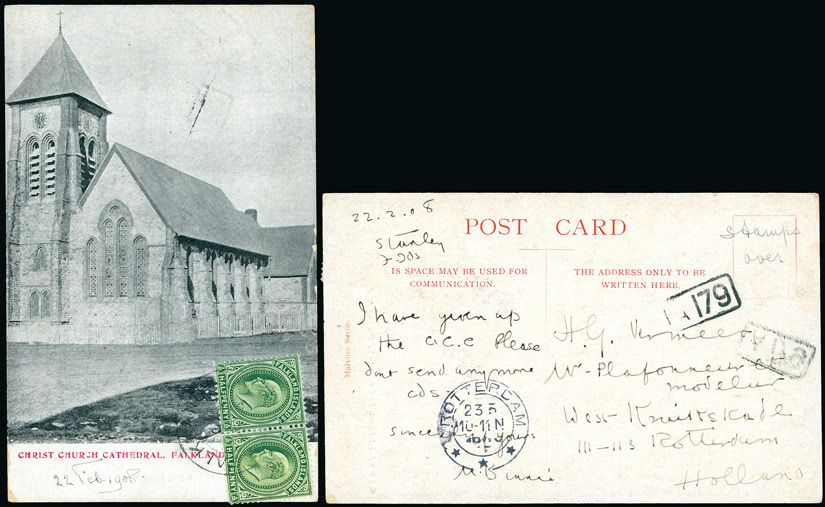 CHRIST CHURCH CATHEDRAL, FALKLAND
22 Feb. 1908
FALKLAND ISLANDS
HALFPENNY
FALKLAND ISLANDS
HALFPENNY
22.2.08
Stanley
F Ids
POST CARD
Stamps
over
IS SPACE MAY BE USED FOR
COMMUNICATION.
THE ADDRESS ONLY TO BE
WRITTEN HERE.
Malvina Series
I have given up
the C.C.C Please
dont send anymore
cds
sincerely yours
ROTTERDAM
23 5
10-11 N
179
H.G. Vermeer
modeleur
West
111-113 Rotterdam
Holland